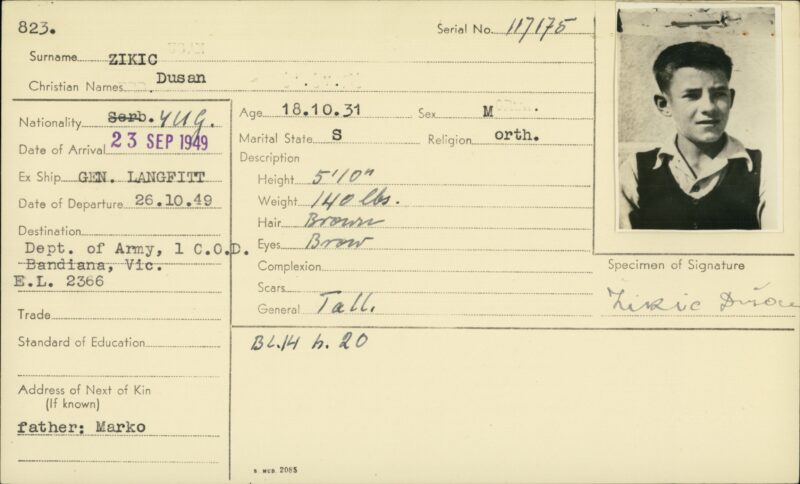 823.
Serial No. 117175
Surname ZIKIC
Christian Names Dusan
Nationality Serb. YUG.
Date of Arrival 23 SEP 1949
Ex Ship GEN. LANGFITT
Date of Departure 26.10.49
Destination
Dept. of Army, 1 C.O.D.
Bandiana, Vic.
E.L. 2366
Trade
Standard of Education
Address of Next of Kin
(If known)
father: Marko
Age 18.10.31 Sex M
Marital State S Religion orth.
Description
Height 5'10"
Weight 140 lbs.
Hair Brown
Eyes Brow
Complexion
Scars
General Tall.
BL.14 h. 20
Specimen of Signature
Zikic Dušan
S. MCD. 2085